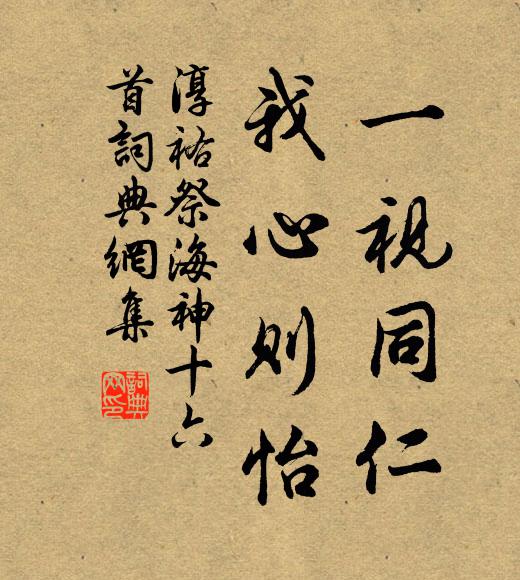 一視同仁
我心則怡
淳祐祭海神十六
首詞典網集
詞典網印